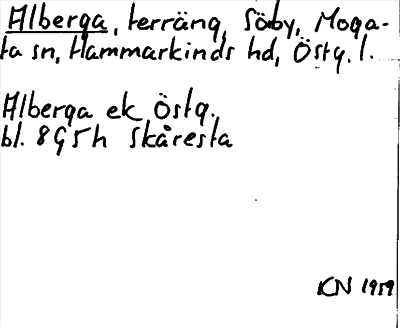 Alberga, terräng, Söby, Moga-
ta sn, Hammarkinds hd, Östg. l.
Alberga ek Östg.
bl. 8G5h Skåresta
KN 1959